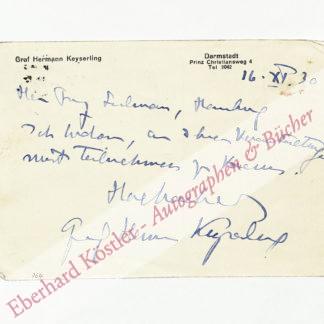 Graf Hermann Keyserling
Darmstadt
Prinz Christiansweg 4
Tel 3042
16. XI. 30
Hamburg
Ich bedaure, an Ihren
nicht teilnehmen zu können.
Hochachtend
Graf Hermann Keyserling
Eberhard Köstler - Autographen & Bücher